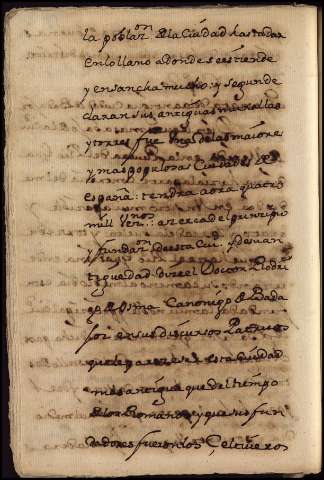 la poblaon de la Ciudad hasta dar
En lo llano a donde se estiende
y ensancha mucho: y segun de
claran sus antiguas murallas
y torres fue Una de las maiores
y mas populosas Ciudades de
España: tendra aora quatro
mil Venos: acerca del principio
y fundaon de esta Ciu. y de su an
tiguedad dize el Doctor Rodri
go de Osma Canonigo de Bada
joz en sus discursos Patrios
que le parece esta Ciudad
mas antigua que del tiempo
de los Romanos y que sus fun
dadores fueron los Celtiueros